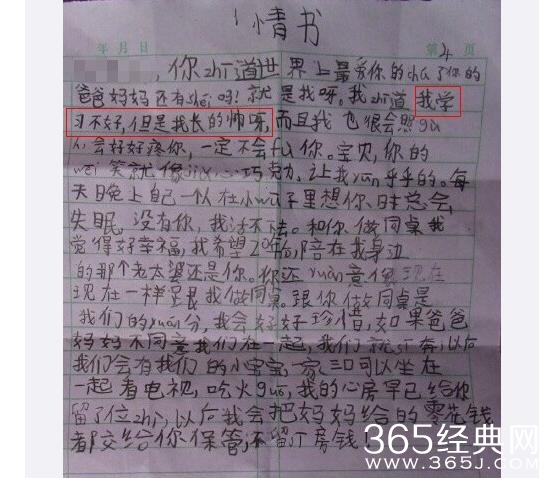 情书
年 月 日 第4页
,你zhī道世界上最爱你的chú了你的
爸爸妈妈还有shéi吗!就是我呀。我zhī道我学
习不好,但是我长的帅呀,而且我也很会照gù
会好好疼你,一定不会fù你。宝贝,你的
wēi笑就像jiā心巧克力,让我yūn乎乎的。每
天晚上自己一个人在小wū子里想你,时总会
失眠,没有你,我活不下去。和你做同桌我
觉得好幸福,我希望20年后,陪在我身边
的那个老太婆还是你。你还yuàn意像现在
现在一样 我做同桌。跟你做同桌是
我们的yuán分,我会好好珍惜,如果爸爸
妈妈不同意我们在一起,我们就 奔,以后
我们会有我们的小宝宝一家三口可以坐在
一起看电视,吃火guō,我的心房早已给你
留了位zhì,以后我会把妈妈给的零花钱
都交给你保管,不留 房钱!
365经典网
www.365J.com